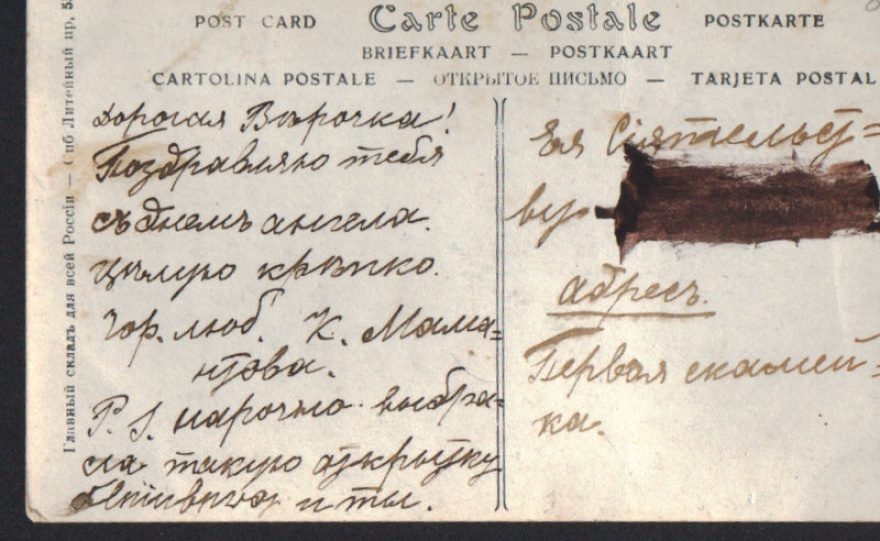 POST CARD Carte Postale POSTKARTE
BRIEFKAART — POSTKAART
CARTOLINA POSTALE — ОТКРЫТОЕ ПИСЬМО — TARJETA POSTAL
Главный складъ для всей Россіи — Спб Литейный пр,
Дорогая Вѣрочка!
Поздравляю тебя
съ днемъ ангела.
Цѣлую крѣпко.
Гор. люб. К. Мама=
нтова.
P. S. нарочно выбра=
ла такую открытку
и ты.
Ея Сіятельст=
ву
адресъ.
Первая скамей=
ка.